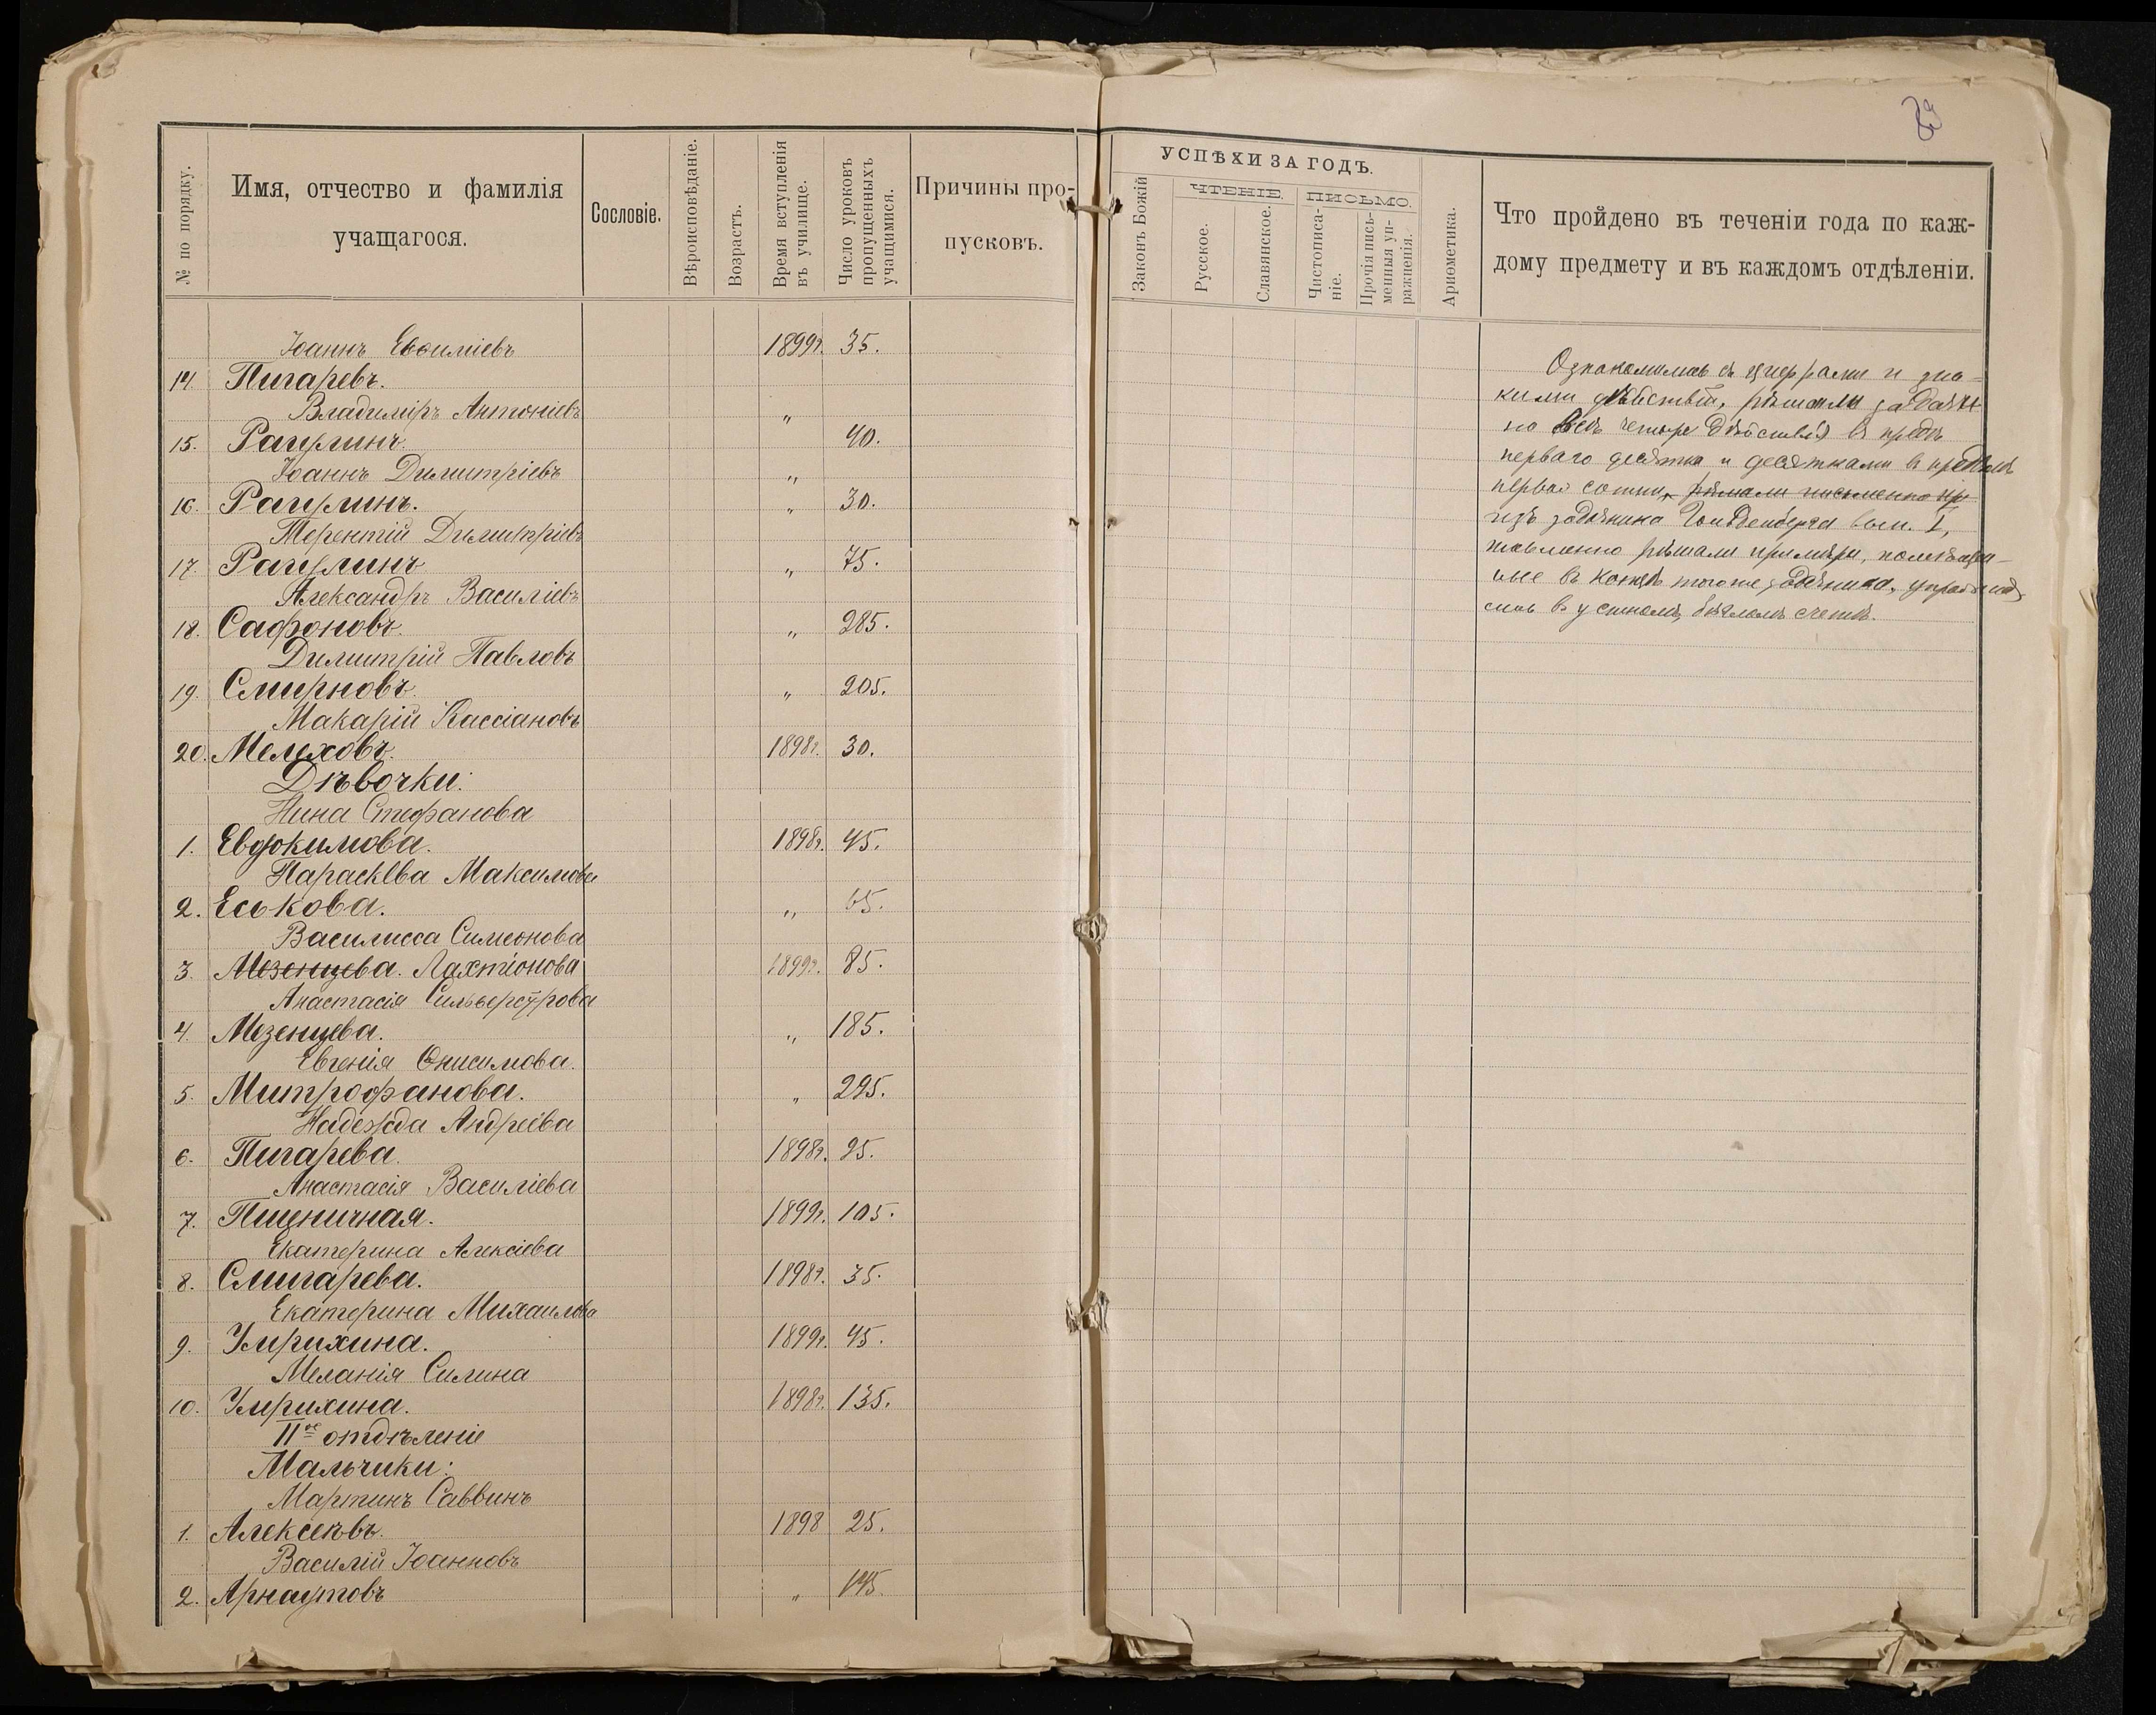 29
№ по порядку.
Имя, отчество и фамилія
учащагося.
Сословіе.
Вѣроисповѣданіе.
Возрастъ.
Время вступленія
въ училище.
Число уроковъ
пропущенныхъ
учащимися.
Причины про-
пусковъ.
УСПѢХИ ЗА ГОДЪ.
Законъ Божій
ЧТЕНІЕ.
Русское.
Славянское.
ПИСЬМО.
Чистописа-
ніе.
Прочія пись-
менныя уп-
ражненія.
Ариѳметика.
Что пройдено въ теченіи года по каж-
дому предмету и въ каждомъ отдѣленіи.
Іоаннъ Евѳиміевъ 1899г. 35.
14. Пигаревъ.
Владиміръ Антоніевъ "
15. Рагулинъ. 40.
Іоаннъ Димитріевъ "
16. Рагулинъ. " 30.
Терентій Димитріевъ
17. Рагулинъ " 75.
Александръ Василіевъ
18. Сафоновъ. " 285.
Димитрій Павловъ
19. Смирновъ. " 205.
Макарій Кассіановъ
20. Мелеховъ. 1898г. 30.
Дѣвочки:
Нина Стефанова
1. Евдокимова. 1898г. 45.
Параскева Максимова
2. Еськова. " 65.
Василисса Симеонова
3. Мезенцева. Лахтіонова 1899г. 85.
Анастасія Сильвестрова
4. Мезенцева. " 185.
Евгенія Онисимова.
5. Митрофанова. " 295.
Надежда Андреева
6. Пигарева. 1898г. 25.
Анастасія Василіева
7. Пшеничная. 1899г. 105.
Екатерина Алексіева
8. Слигарева. 1898г. 35.
Екатерина Михаилова
9. Умрихина. 1899г. 45.
Меланія Силина
10. Умрихина. 1898г. 135.
IIое отдѣленіе
Мальчики:
Мартинъ Саввинъ
1. Алексѣевъ. 1898 25.
Василій Іоанновъ
2. Арнаутовъ " 145.
Ознакомились съ цифрами и зна-
ками дѣйствій, рѣшали задачи
на всѣ четыре дѣйствія въ предѣ
перваго десятка и десятками въ предѣлѣ
первой сотни, рѣшали письменно пр
изъ задачника Гольденберга вып. I,
письменно рѣшали примѣры, помѣщен-
ные въ концѣ того же задачника, упражня
лись въ устномъ бѣгломъ счетѣ.